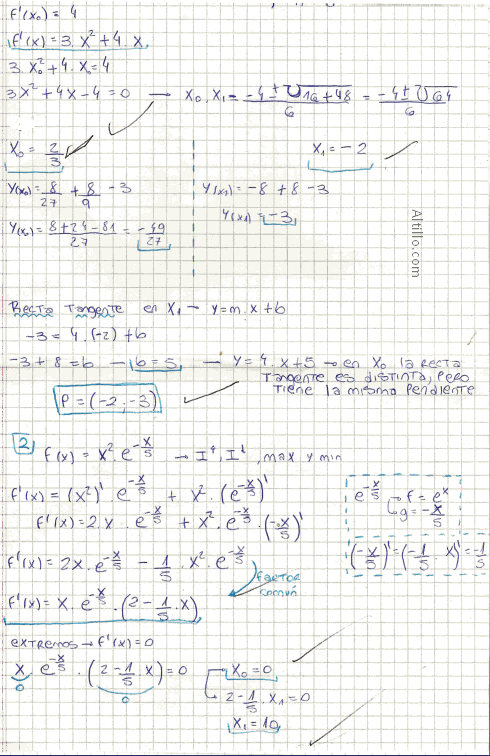 f'(x₀) = 4
f'(x) = 3. x² + 4. x
3. x₀² + 4. x₀ = 4
3x² + 4x - 4 = 0 → x₀, x₁ = (-4 ± √(16+48))/6 = (-4 ± √64)/6
x₀ = 2/3
x₁ = -2
y(x₀) = 8/27 + 8/9 - 3
y(x₁) = -8 + 8 - 3
y(x₁) = -3
y(x₀) = (8+24-81)/27 = -49/27
Altillo.com
Recta Tangente en x₁ → y = m. x + b
-3 = 4. (-2) + b
-3 + 8 = b → b = 5 → y = 4. x + 5 → en x₀ la recta
tangente es distinta, pero
tiene la misma pendiente
P = (-2, -3)
2
f(x) = x². e^(-x/5) → I↑, I↓, max y min
f'(x) = (x²)'. e^(-x/5) + x². (e^(-x/5))'
e^(-x/5) → f = eˣ
g = -x/5
f'(x) = 2. x. e^(-x/5) + x². e^(-x/5). (-x/5)'
(-x/5)' = (-1/5. x)' = -1/5
f'(x) = 2x. e^(-x/5) - 1/5. x². e^(-x/5)
factor
común
f'(x) = x. e^(-x/5). (2 - 1/5. x)
extremos → f'(x) = 0
x. e^(-x/5). (2 - 1/5. x) = 0 → x₀ = 0
0 0
2 - 1/5. x₁ = 0
x₁ = 10